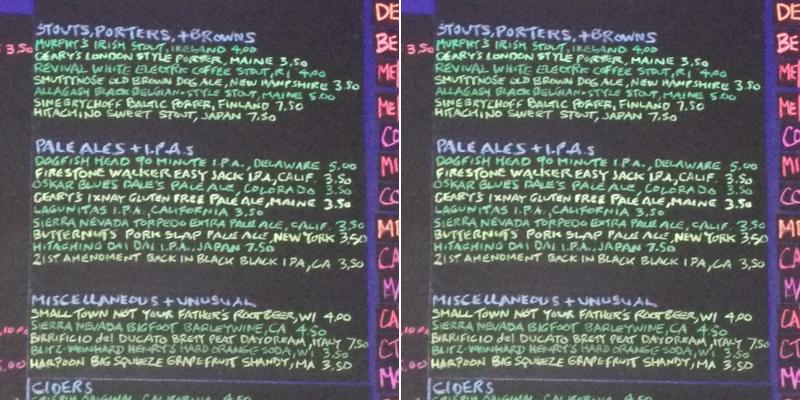 3.50
STOUTS, PORTERS, + BROWNS
MURPHY'S IRISH STOUT, IRELAND 4.00
GEARY'S LONDON STYLE PORTER, MAINE 3.50
REVIVAL WHITE ELECTRIC COFFEE STOUT, RI 4.00
SMUTTNOSE OLD BROWN DOG ALE, NEW HAMPSHIRE 3.50
ALLAGASH BLACK BELGIAN-STYLE STOUT, MAINE 5.00
SINEBRYCHOFF BALTIC PORTER, FINLAND 7.50
HITACHINO SWEET STOUT, JAPAN 7.50
PALE ALES + I.P.A.s
DOGFISH HEAD 90 MINUTE I.P.A., DELAWARE 5.00
FIRESTONE WALKER EASY JACK I.P.A., CALIF. 3.50
OSKAR BLUES DALE'S PALE ALE, COLORADO 3.50
GEARY'S IXNAY GLUTEN FREE PALE ALE, MAINE 3.50
LAGUNITAS I.P.A., CALIFORNIA 3.50
SIERRA NEVADA TORPEDO EXTRA PALE ALE, CALIF. 3.50
BUTTERNUTS PORK SLAP PALE ALE, NEW YORK 3.50
HITACHINO DAI DAI I.P.A., JAPAN 7.50
21ST AMENDMENT BACK IN BLACK BLACK I.P.A., CA 3.50
MISCELLANEOUS + UNUSUAL
SMALL TOWN NOT YOUR FATHER'S ROOT BEER, WI 4.00
SIERRA NEVADA BIGFOOT BARLEYWINE, CA 4.50
BIRRIFICIO del DUCATO BRETT PEAT DAYDREAM, ITALY 7.50
BLITZ-WEINHARD HENRY'S HARD ORANGE SODA, WI 3.50
HARPOON BIG SQUEEZE GRAPEFRUIT SHANDY, MA 3.50
CIDERS
3.50
STOUTS, PORTERS, + BROWNS
MURPHY'S IRISH STOUT, IRELAND 4.00
GEARY'S LONDON STYLE PORTER, MAINE 3.50
REVIVAL WHITE ELECTRIC COFFEE STOUT, RI 4.00
SMUTTNOSE OLD BROWN DOG ALE, NEW HAMPSHIRE 3.50
ALLAGASH BLACK BELGIAN-STYLE STOUT, MAINE 5.00
SINEBRYCHOFF BALTIC PORTER, FINLAND 7.50
HITACHINO SWEET STOUT, JAPAN 7.50
PALE ALES + I.P.A.s
DOGFISH HEAD 90 MINUTE I.P.A., DELAWARE 5.00
FIRESTONE WALKER EASY JACK I.P.A., CALIF. 3.50
OSKAR BLUES DALE'S PALE ALE, COLORADO 3.50
GEARY'S IXNAY GLUTEN FREE PALE ALE, MAINE 3.50
LAGUNITAS I.P.A., CALIFORNIA 3.50
SIERRA NEVADA TORPEDO EXTRA PALE ALE, CALIF. 3.50
BUTTERNUTS PORK SLAP PALE ALE, NEW YORK 3.50
HITACHINO DAI DAI I.P.A., JAPAN 7.50
21ST AMENDMENT BACK IN BLACK BLACK I.P.A., CA 3.50
MISCELLANEOUS + UNUSUAL
SMALL TOWN NOT YOUR FATHER'S ROOT BEER, WI 4.00
SIERRA NEVADA BIGFOOT BARLEYWINE, CA 4.50
BIRRIFICIO del DUCATO BRETT PEAT DAYDREAM, ITALY 7.50
BLITZ-WEINHARD HENRY'S HARD ORANGE SODA, WI 3.50
HARPOON BIG SQUEEZE GRAPEFRUIT SHANDY, MA 3.50
CIDERS